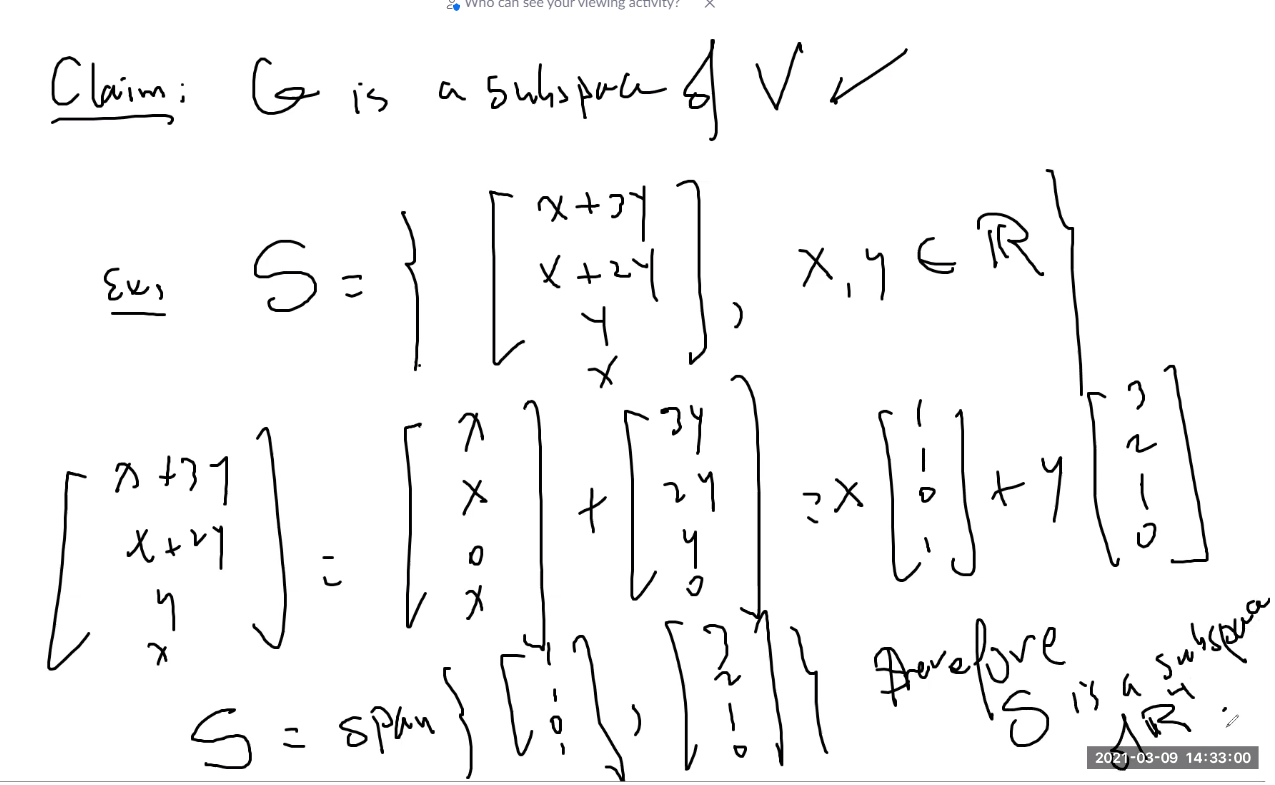 Who can see your viewing activity? ×
Claim: G is a subspace of V ✓
Ex, S = { [ x+3y x+2y y x ] , x, y ∈ ℝ }
[ x+3y x+2y y x ] = [ x x 0 x ] + [ 3y 2y y 0 ] = x [ 1 1 0 1 ] + y [ 3 2 1 0 ]
S = span { [ 1 1 0 1 ] , [ 3 2 1 0 ] } therefore S is a subspace of ℝ⁴ .
2021-03-09 14:33:00